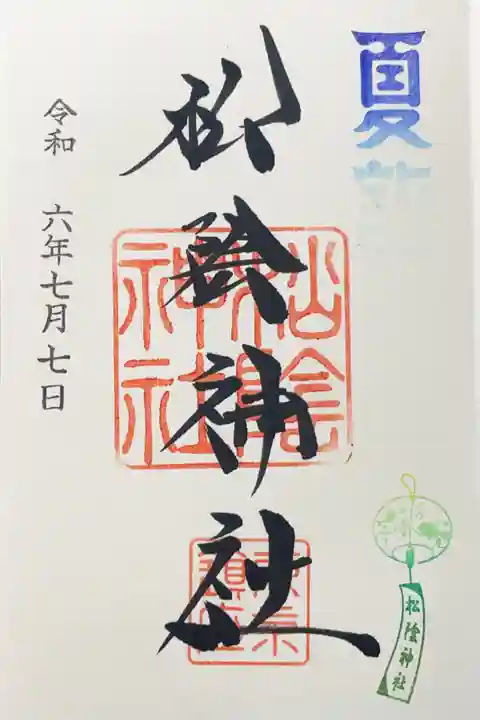 夏詣
松陰神社
令和 六年七月七日
松陰神社
東京
鎮座
松陰神社